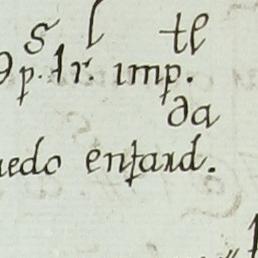 s l te
dp. lr. imp.
da
uedo enfard.